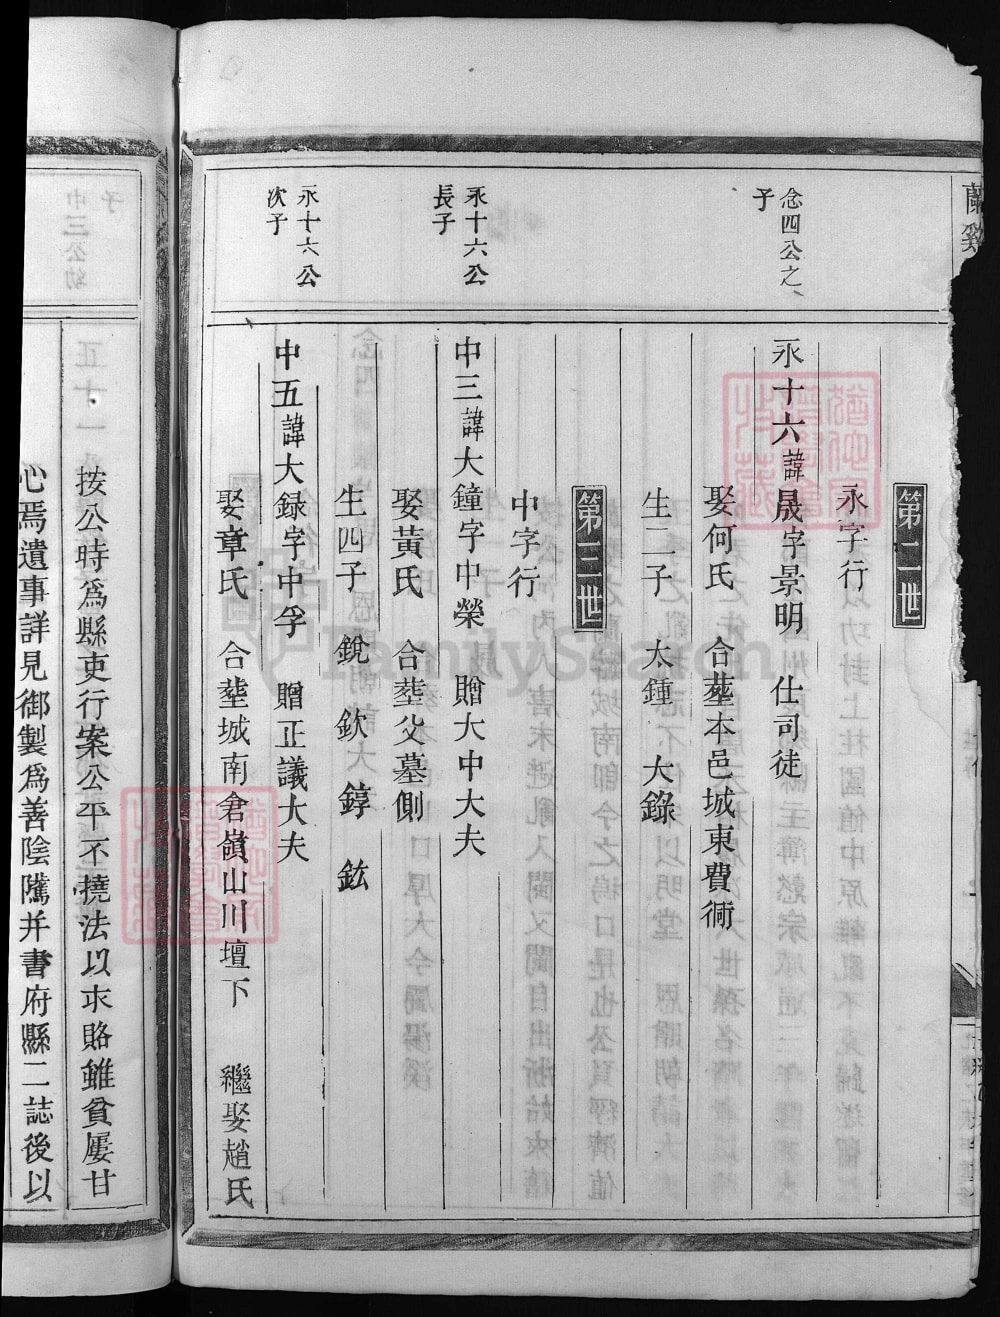 蘭谿
第二世
永字行
念四公之子
永十六諱晟字景明 仕司徒
娶何氏 合塟本邑城東費衕
生二子 大鍾 大錄
第三世
中字行
永十六公長子
中三諱大鐘字中榮 贈大中大夫
娶黃氏 合塟父墓側
生四子 銳 欽 錞 鉉
永十六公次子
中五諱大録字中孚 贈正議大夫
娶章氏 合塟城南倉嶺山川壇下 繼娶趙氏
按公時爲縣吏行案公平不撓法以求賂雖貧屢甘
心焉遺事詳見御製爲善陰隲并書府縣二誌後以
FamilySearch